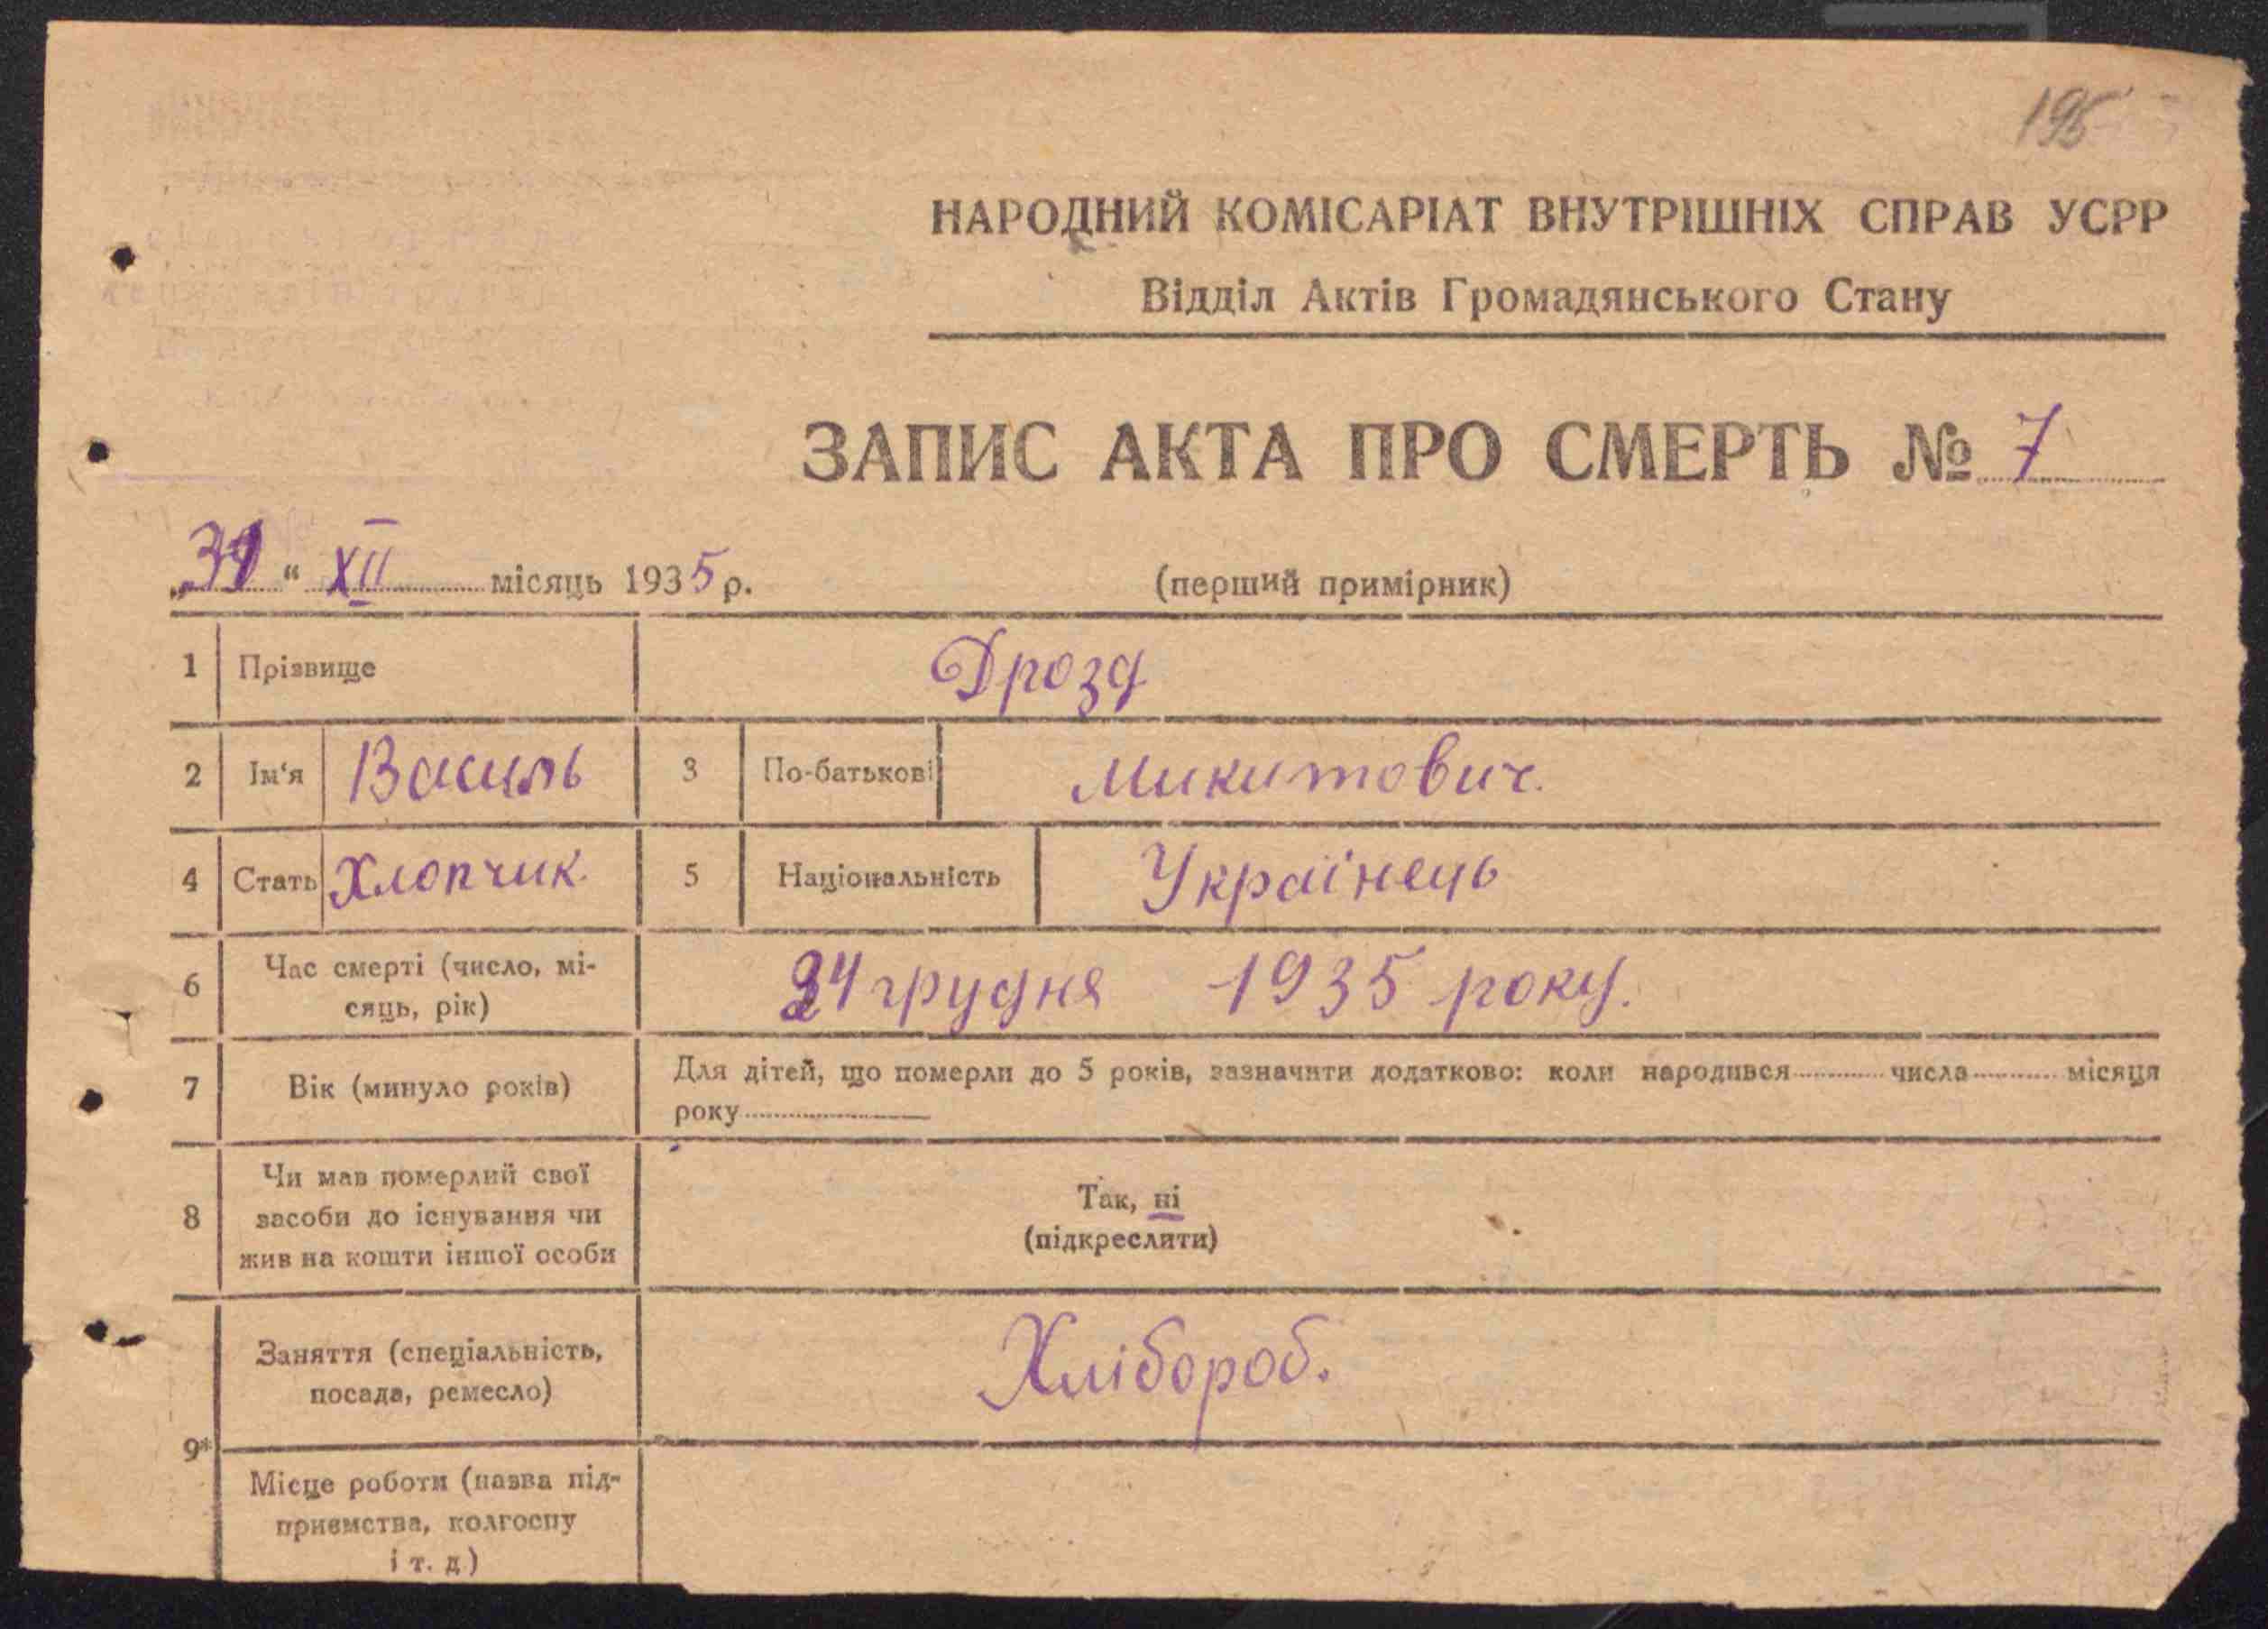 195
НАРОДНИЙ КОМІСАРІАТ ВНУТРІШНІХ СПРАВ УСРР
Відділ Актів Громадянського Стану
ЗАПИС АКТА ПРО СМЕРТЬ № 7
„31“ XII місяць 1935 р. (перший примірник)
1 Прізвище Дрозд
2 Ім'я Василь 3 По-батькові Микитович.
4 Стать Хлопчик. 5 Національність Українець
6 Час смерті (число, мі-
сяць, рік) 24 грудня 1935 року.
7 Вік (минуло років) Для дітей, що померли до 5 років, зазначити додатково: коли народився числа місяця
року
8 Чи мав померлий свої
засоби до існування чи
жив на кошти іншої особи
Так, ні
(підкреслити)
9*
Заняття (спеціальність,
посада, ремесло) Хлібороб.
Місце роботи (назва під-
приємства, колгоспу
і т. д)